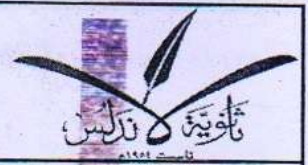 ثانوية الأندلس
تأسست ١٩٥٤م